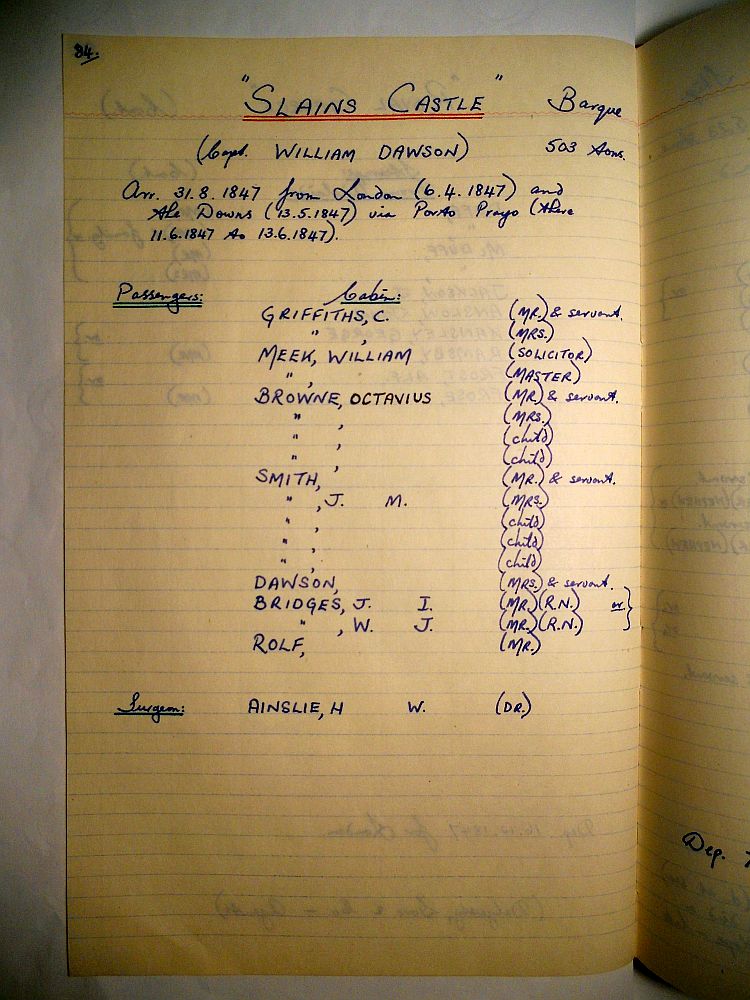 84.
"SLAINS CASTLE" Barque
(Capt. WILLIAM DAWSON) 503 tons.
Arr. 31.8.1847 from London (6.4.1847) and
the Downs (13.5.1847) via Porto Prayo (there
11.6.1847 to 13.6.1847).
Passengers: Cabin:
GRIFFITHS, C. (MR.) & servant.
" , (MRS.)
MEEK, WILLIAM (SOLICITOR)
" , (MASTER)
BROWNE, OCTAVIUS (MR.) & servant.
" , (MRS.)
" , (child)
" , (child)
SMITH, (MR.) & servant.
" , J. M. (MRS.)
" , (child)
" , (child)
" , (child)
DAWSON, (MRS.) & servant.
BRIDGES, J. I. (MR.) (R.N.) or }
" , W. J. (MR.) (R.N.)
ROLF, (MR.)
Surgeon: AINSLIE, H W. (DR.)
Dep.